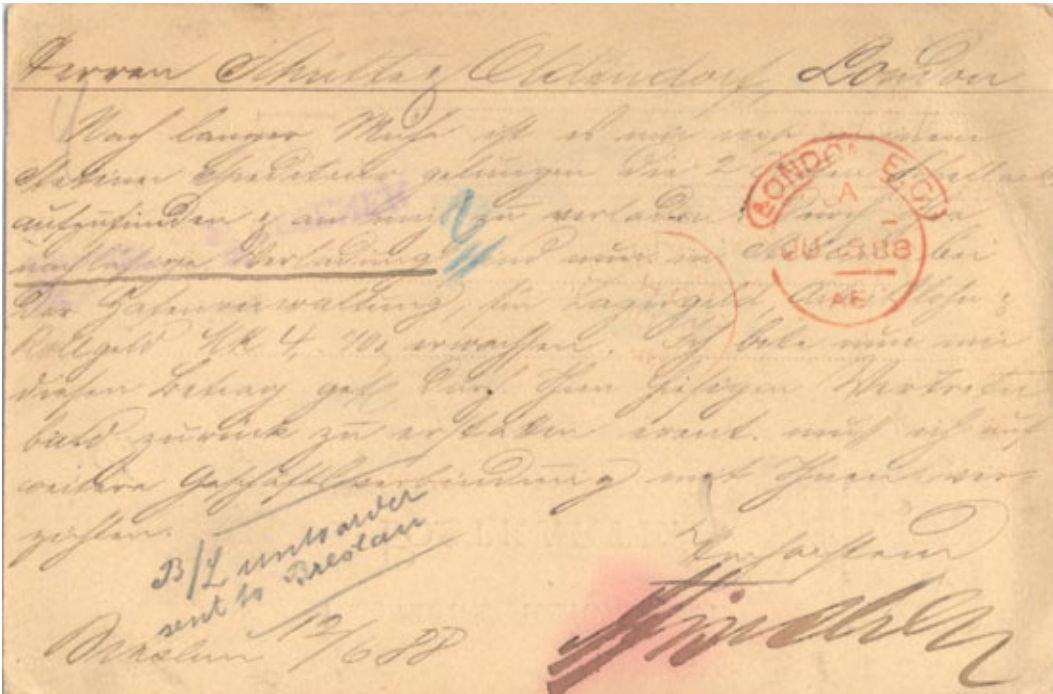 Herren Schütte & Oldendorf, London
Nach langer Mühe ist es mir resp. meinem
Stettiner Spediteur gelungen die 2
aufzufinden & an mich zu verladen. Durch die
nachlässige Verladung sind nun in Stettin bei
der Hafenverwaltung, für Lagergeld,
Rollgeld Mk 4, 70 erwachsen. Ich bitte nun mir
diesen Betrag gefl. durch Ihren hiesigen Vertreter
bald zurück zu erstatten event. muß ich auf
weitere Geschäftsverbindung mit Ihnen ver-
zichten.
B/L unto order
sent to Breslau
Breslau 12/6 88
LONDON E.C.
A
JU 88
AE